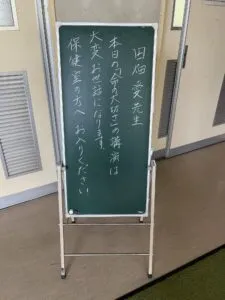 田畑 愛先生
本日の「命の大切さ」の講演は
大変お世話になります。
保健室の方へお入りください